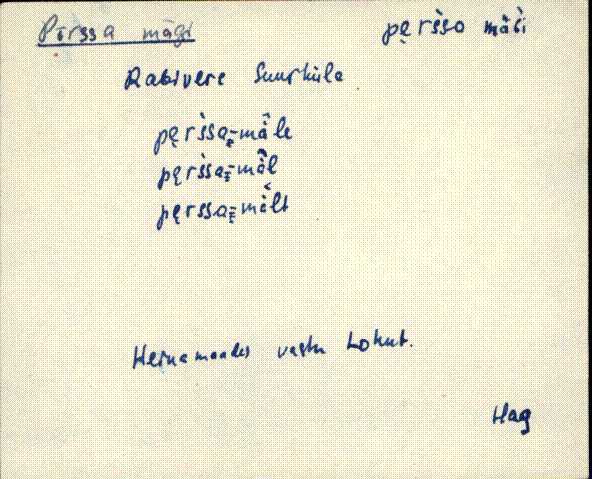 Põrssa mägi
pęr̀šso mäGi
Rabivere Suurküla
pęr̀šsa-mäle
pęr̀šsa-mäl
pęrssa-mält
Heinamaades vastu Lohut.
Hag